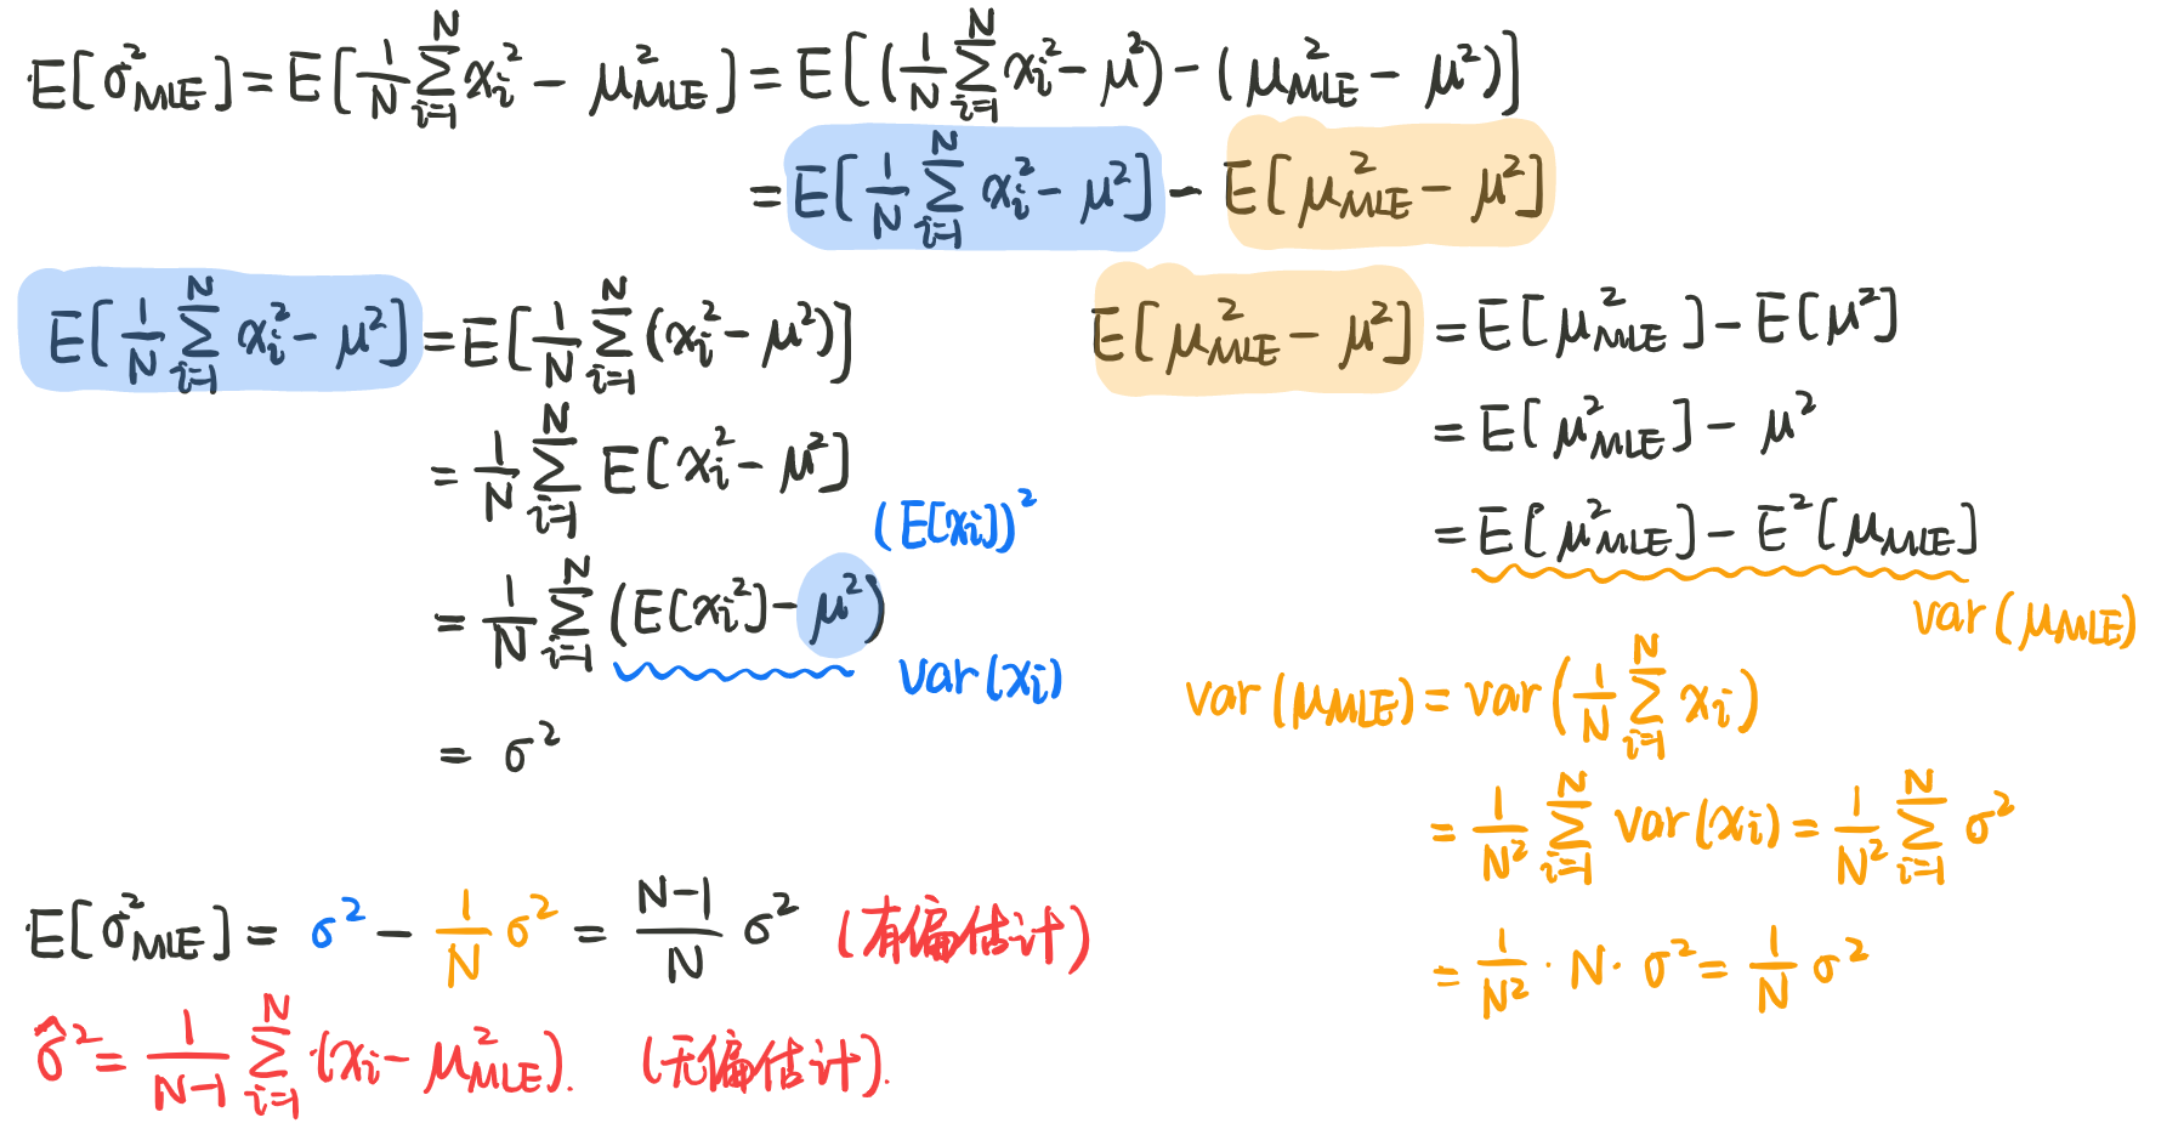 E[σ²_MLE] = E[1/N ∑_{i=1}^{N} x_i² − μ²_MLE] = E[(1/N ∑_{i=1}^{N} x_i² − μ²) − (μ²_MLE − μ²)]
= E[1/N ∑_{i=1}^{N} x_i² − μ²] − E[μ²_MLE − μ²]
E[1/N ∑_{i=1}^{N} x_i² − μ²] = E[1/N ∑_{i=1}^{N} (x_i² − μ²)]
= 1/N ∑_{i=1}^{N} E[x_i² − μ²]
(E[x_i])²
= 1/N ∑_{i=1}^{N} (E[x_i²] − μ²)
var(x_i)
= σ²
E[μ²_MLE − μ²] = E[μ²_MLE] − E[μ²]
= E[μ²_MLE] − μ²
= E[μ²_MLE] − E²[μ_MLE]
var(μ_MLE)
var(μ_MLE) = var(1/N ∑_{i=1}^{N} x_i)
= 1/N² ∑_{i=1}^{N} var(x_i) = 1/N² ∑_{i=1}^{N} σ²
= 1/N² · N · σ² = 1/N σ²
E[σ²_MLE] = σ² − 1/N σ² = N−1/N σ² (有偏估计)
σ̂² = 1/N−1 ∑_{i=1}^{N} (x_i − μ²_MLE). (无偏估计).